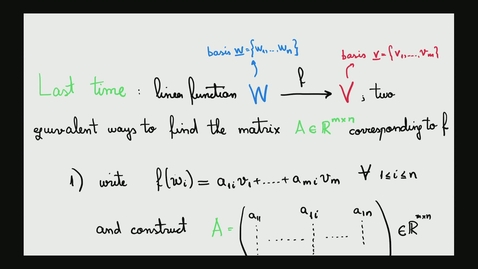 basis w={w₁,...,wₙ}
basis v={v₁,...,vₘ}
Last time : linear function W f→ V, two
equivalent ways to find the matrix A∈ℝᵐˣⁿ corresponding to f
1) write f(wᵢ) = a₁ᵢv₁+.....+aₘᵢvₘ ∀ 1≤i≤n
and construct A = ( a₁₁ ...... a₁ᵢ ...... a₁ₙ ) ∈ℝᵐˣⁿ